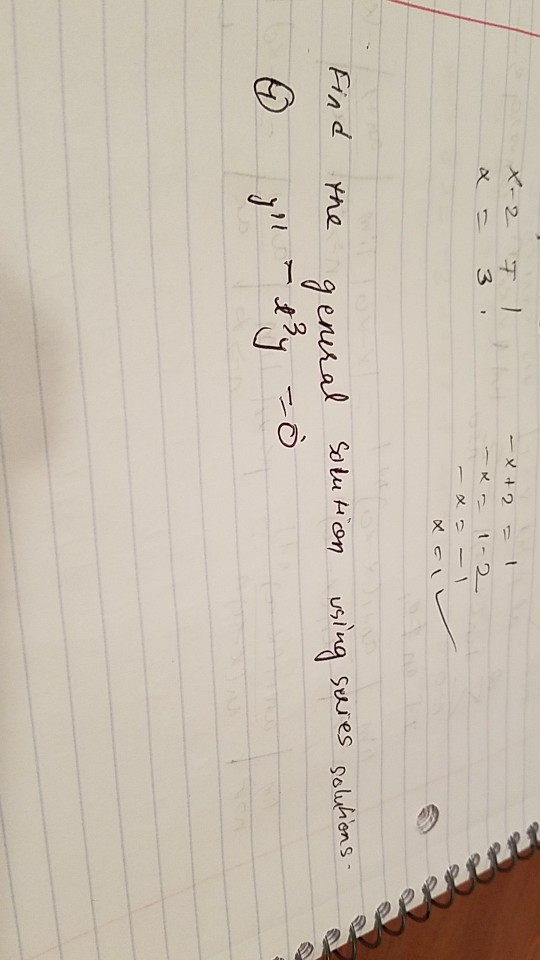 x-2 = 1
x = 3.
-x+2 = 1
-x = 1-2
-x = -1
x = 1 ✓
Find the general solution using series solutions.
④ y'' - t³y = 0